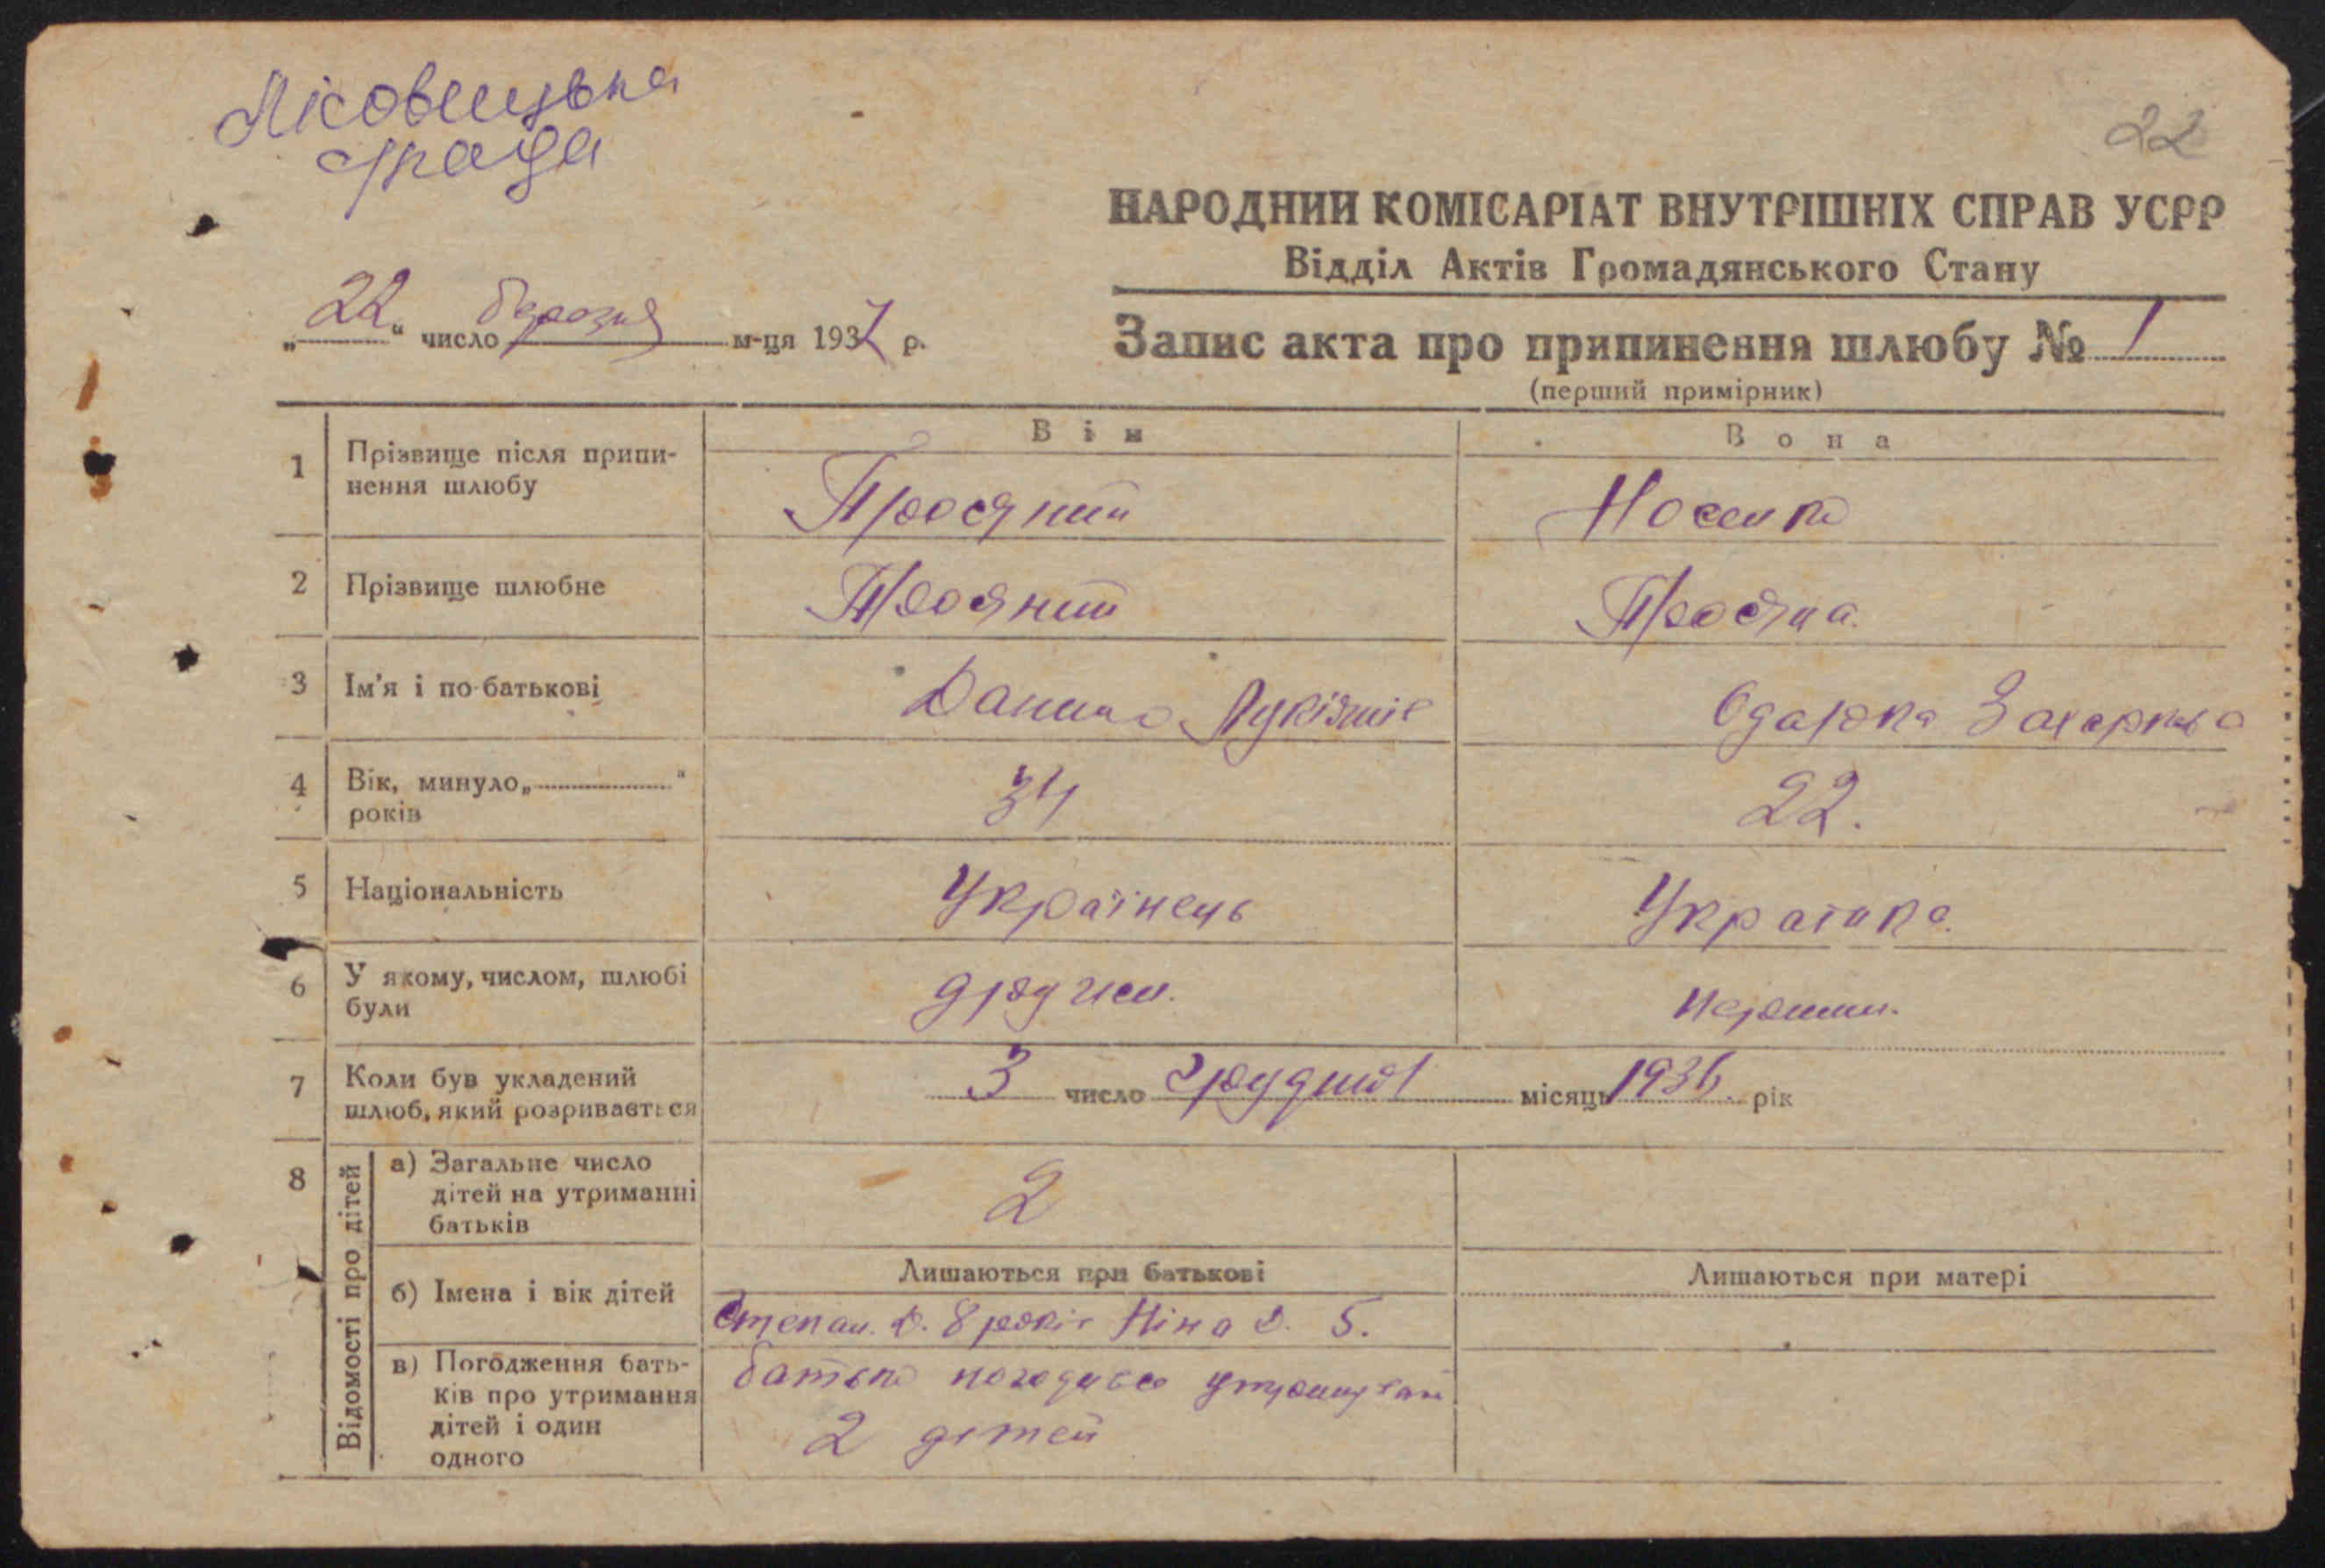 Лісовецька
с/рада
22
НАРОДНИЙ КОМІСАРІАТ ВНУТРІШНІХ СПРАВ УСРР
Відділ Актів Громадянського Стану
„22“ число березня м-ця 1937 р.
Запис акта про припинення шлюбу № 1
(перший примірник)
Він Вона
1 Прізвище після припи-
нення шлюбу Просяний Носенко
2 Прізвище шлюбне Просяний Просяна.
3 Ім'я і по-батькові Данило Лукіянів Одарка Захарова
4 Вік, минуло „ “
років 34 22.
5 Національність Українець Українка.
6 У якому, числом, шлюбі
були другім. першим.
7 Коли був укладений
шлюб, який розривається 3 число грудня місяць 1936. рік
8 Відомості про дітей
а) Загальне число
дітей на утриманні
батьків 2
Лишаються при батькові Лишаються при матері
б) Імена і вік дітей Степан. Д. 8 років Ніна Д. 5.
в) Погодження бать-
ків про утримання
дітей і один
одного
батько погодився утримувати
2 дітей